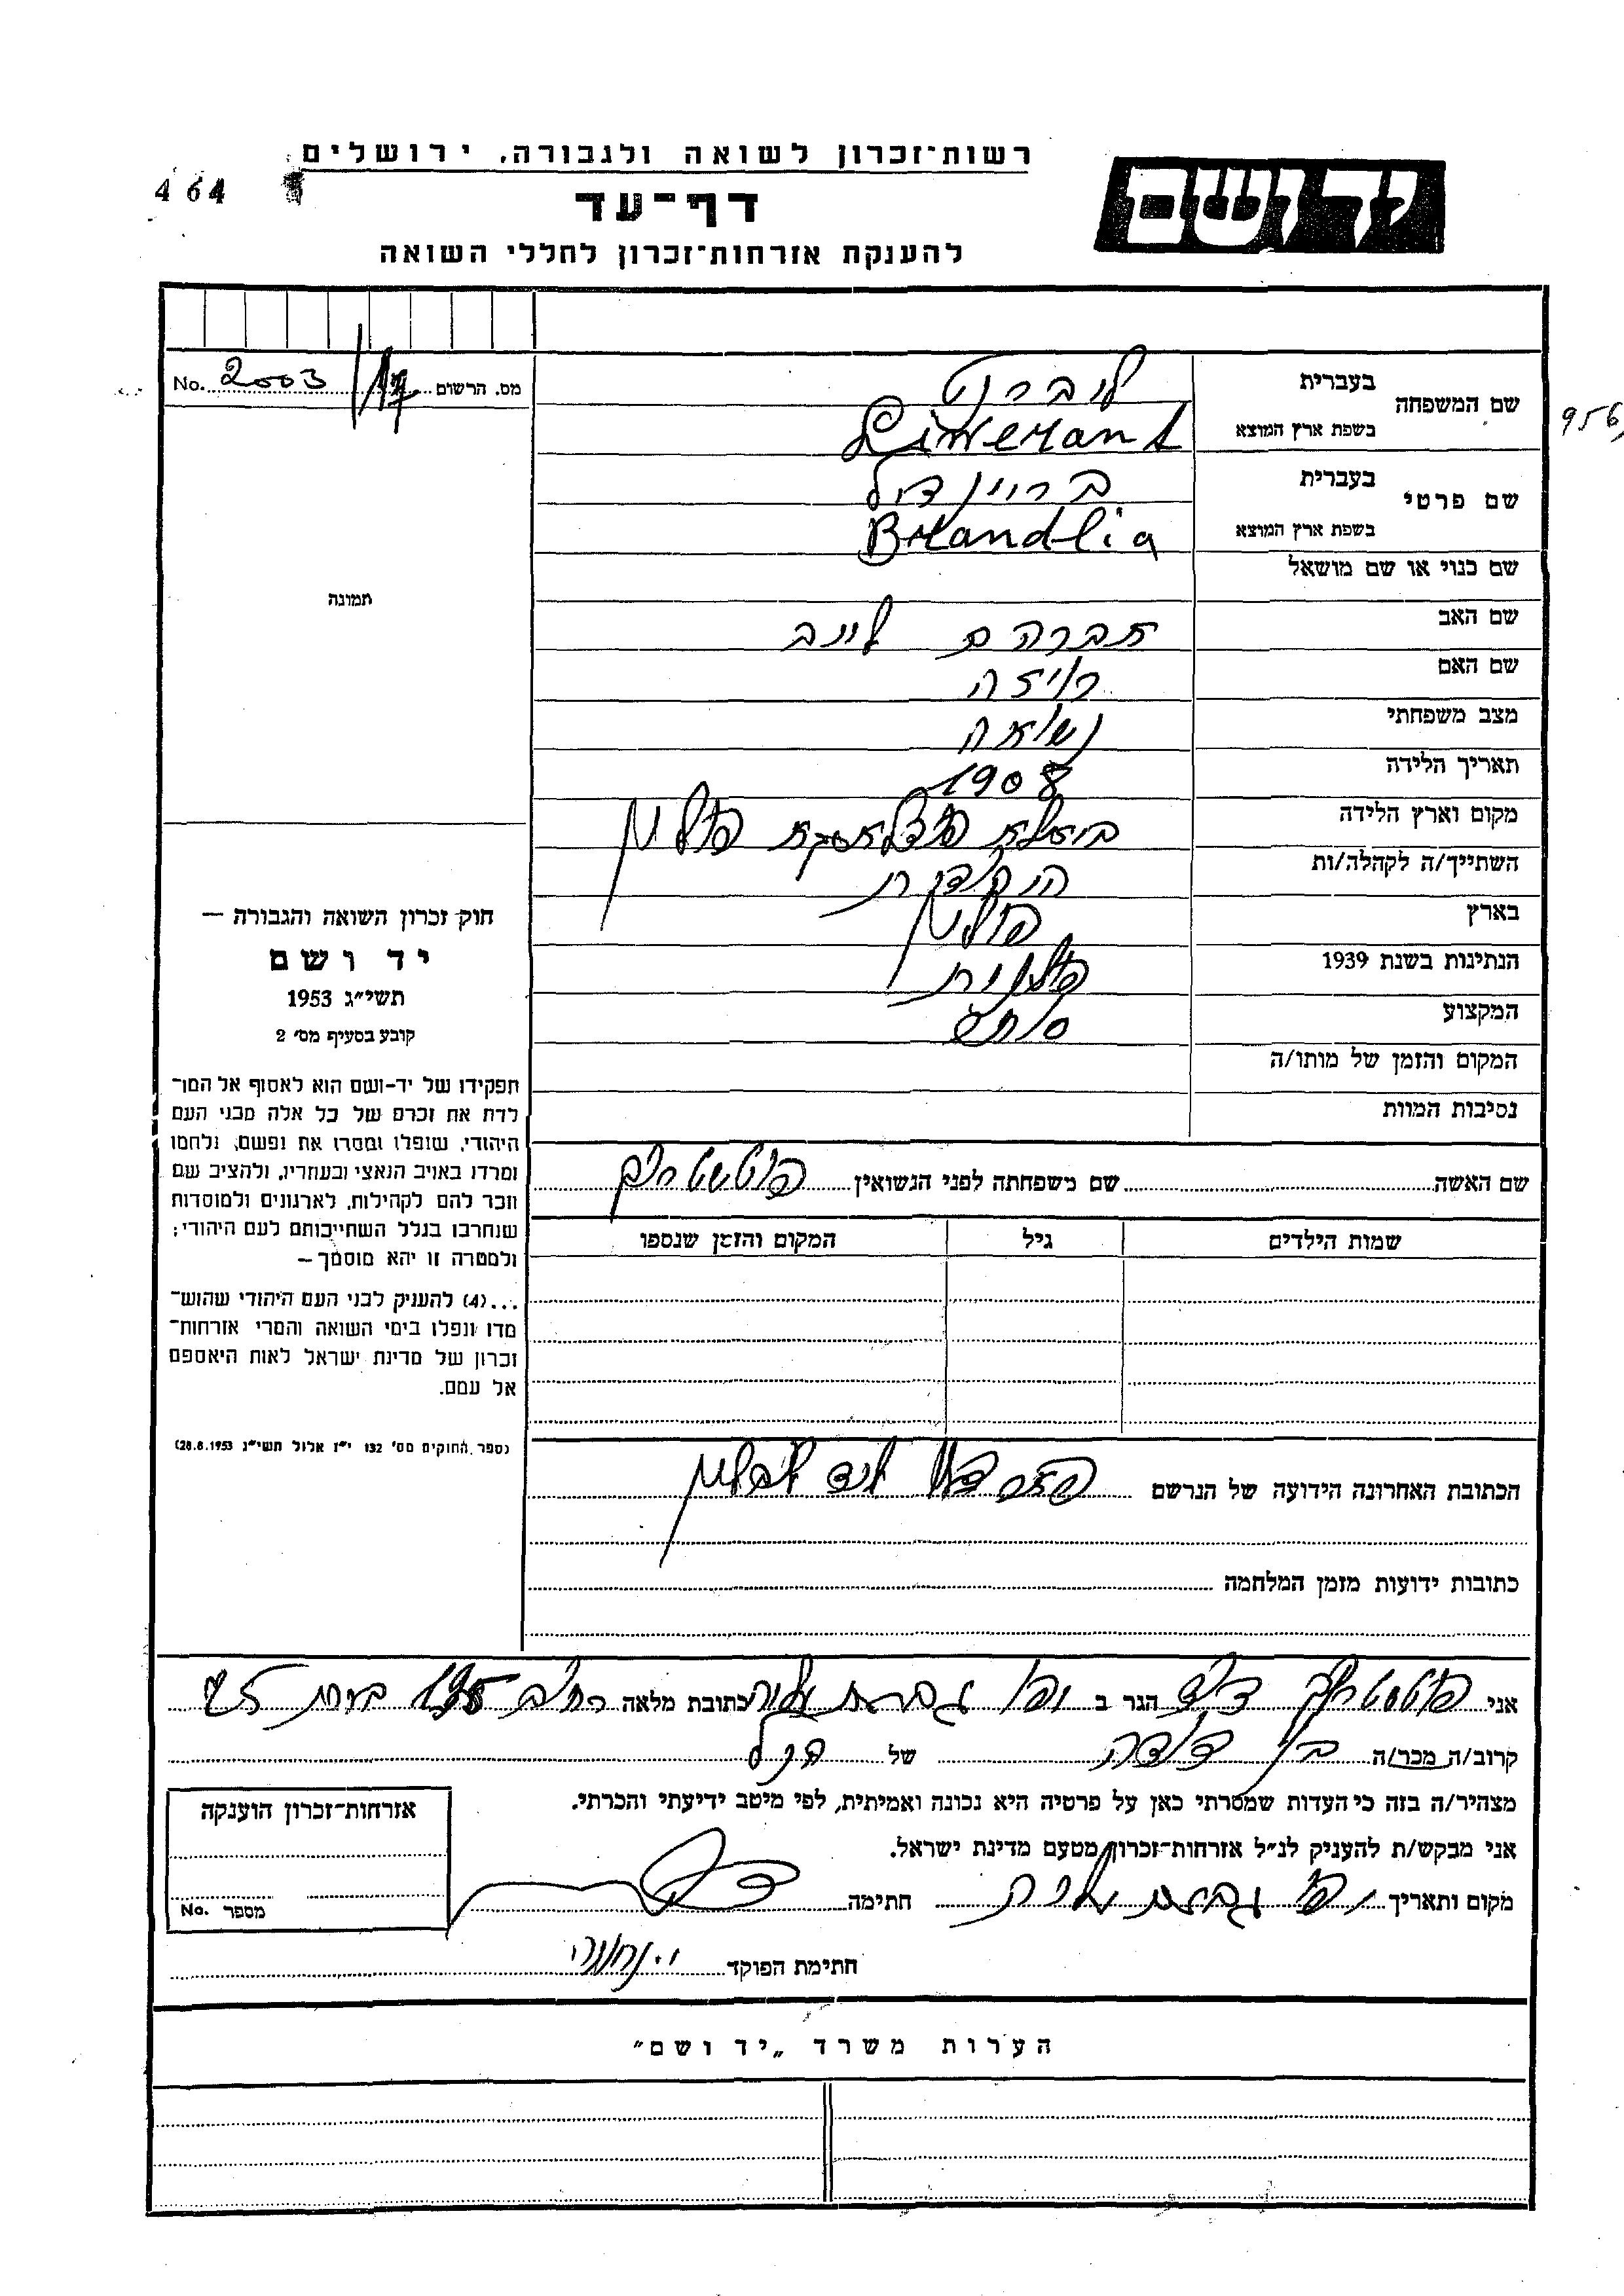 רשות־זכרון לשואה ולגבורה, ירושלים
464
יד ושם
דף־עד
להענקת אזרחות־זכרון לחללי השואה
מס. הרשום 2003/17 No.
שם המשפחה בעברית ליברנט
בשפת ארץ המוצא Liwerant
956
שם פרטי בעברית בריינדיל
בשפת ארץ המוצא Brandlia
שם כנוי או שם מושאל
תמונה
שם האב אברהם לייב
שם האם רויזה
מצב משפחתי נשואה
תאריך הלידה 1908
מקום וארץ הלידה ביאלא פודלאסקא פולין
השתייך/ה לקהלה/ות
בארץ פולין
הנתינות בשנת 1939 פולנית
המקצוע
המקום והזמן של מותו/ה
נסיבות המוות
חוק זכרון השואה והגבורה —
יד ושם
תשי״ג 1953
קובע בסעיף מס׳ 2
תפקידו של יד-ושם הוא לאסוף אל המו־
לדת את זכרם של כל אלה מבני העם
היהודי, שנפלו ומסרו את נפשם, נלחמו
ומרדו באויב הנאצי ובעוזריו, ולהציב שם
וזכר להם לקהילות, לארגונים ולמוסדות
שנחרבו בגלל השתייכותם לעם היהודי;
ולמטרה זו יהא מוסמך —
...(4) להעניק לבני העם היהודי שהוש־
מדו ונפלו בימי השואה והמרי אזרחות־
זכרון של מדינת ישראל לאות היאספם
אל עמם.
(ספר החוקים מס׳ 132 י״ז אלול תשי״ג 28.8.1953)
שם האשה שם משפחתה לפני הנשואין
שמות הילדים גיל המקום והזמן שנספו
הכתובת האחרונה הידועה של הנרשם ליד לובלין
כתובות ידועות מזמן המלחמה
אני דוד הגר ב כתובת מלאה
קרוב/ה מכר/ה בן דודה של הנ״ל
מצהיר/ה בזה כי העדות שמסרתי כאן על פרטיה היא נכונה ואמיתית, לפי מיטב ידיעתי והכרתי.
אני מבקש/ת להעניק לנ״ל אזרחות־זכרון מטעם מדינת ישראל.
מקום ותאריך חתימה
חתימת הפוקד
אזרחות־זכרון הוענקה
מספר No.
הערות משרד „יד ושם״